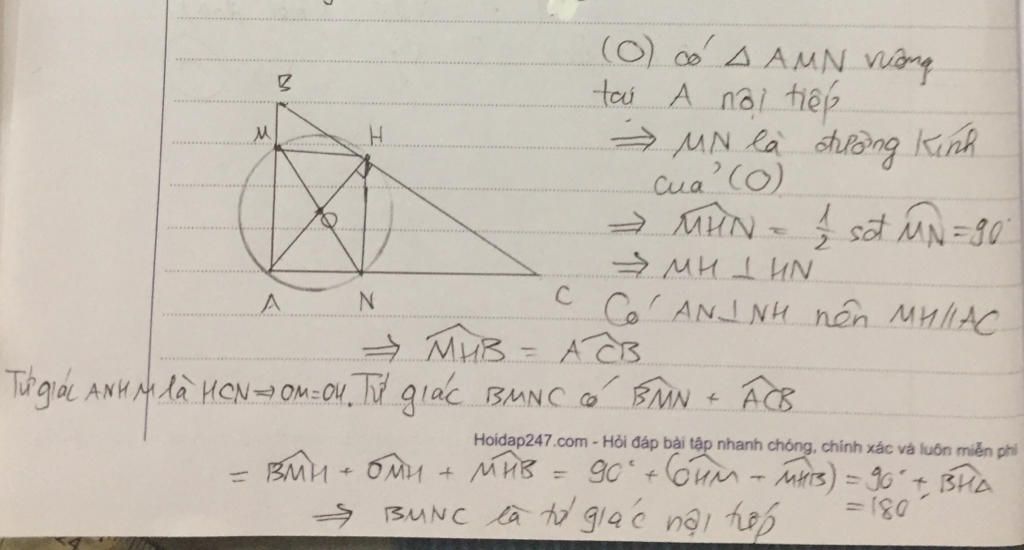 (O) có △ AMN vuông
tại A nội tiếp
⇒ MN là đường kính
của (O)
⇒ \widehat{MHN} = \frac{1}{2} sđ \overset{\frown}{MN} = 90°
⇒ MH ⊥ HN
Có AN ⊥ NH nên MH // AC
⇒ \widehat{MHB} = \widehat{ACB}
Tứ giác ANHM là HCN ⇒ OM = OH. Tứ giác BMNC có \widehat{BMN} + \widehat{ACB}
Hoidap247.com - Hỏi đáp bài tập nhanh chóng, chính xác và luôn miễn phí
= \widehat{BMH} + \widehat{OMH} + \widehat{MHB} = 90° + (\widehat{OHM} + \widehat{MHB}) = 90° + \widehat{BHA}
= 180°
⇒ BMNC là tứ giác nội tiếp
B
M
H
O
A
N
C